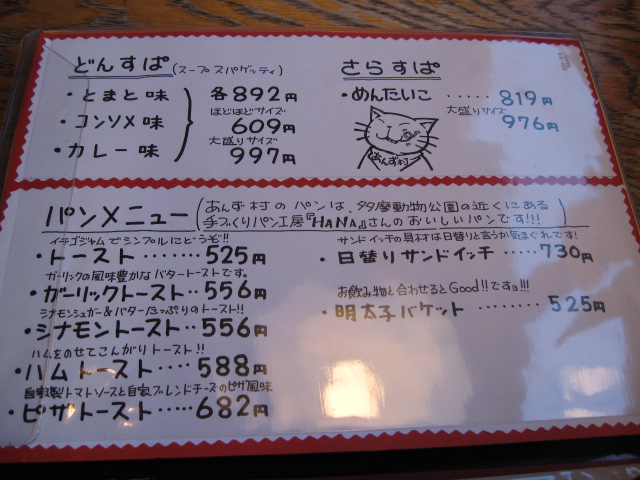 どんすぱ(スープスパゲッティ)
・とまと味
・コンソメ味
・カレー味
各892円
ほどほどサイズ
609円
大盛りサイズ
997円
さらすぱ
・めんたいこ ・・・・・ 819円
大盛りサイズ
976円
あんず村
パンメニュー
(あんず村のパンは、多摩動物公園の近くにある
手づくりパン工房『HaNa』さんのおいしいパンです!!!)
イチゴジャムでシンプルにどうぞ!!
・トースト・・・・・・・525円
ガーリックの風味豊かなバタートーストです。
・ガーリックトースト・・556円
シナモンシュガー&バターたっぷりのトースト!!
・シナモントースト・・556円
ハムをのせてこんがりトースト!!
・ハムトースト・・・・588円
自家製トマトソースと自家ブレンドチーズのピザ風味
・ピザトースト・・・・・682円
サンドイッチの具材は日替りと言うか気まぐれです!
・日替りサンドイッチ ・・・・・730円
お飲み物と合わせるとGood!!ですョ!!!
・明太子バケット ・・・・・・・・525円